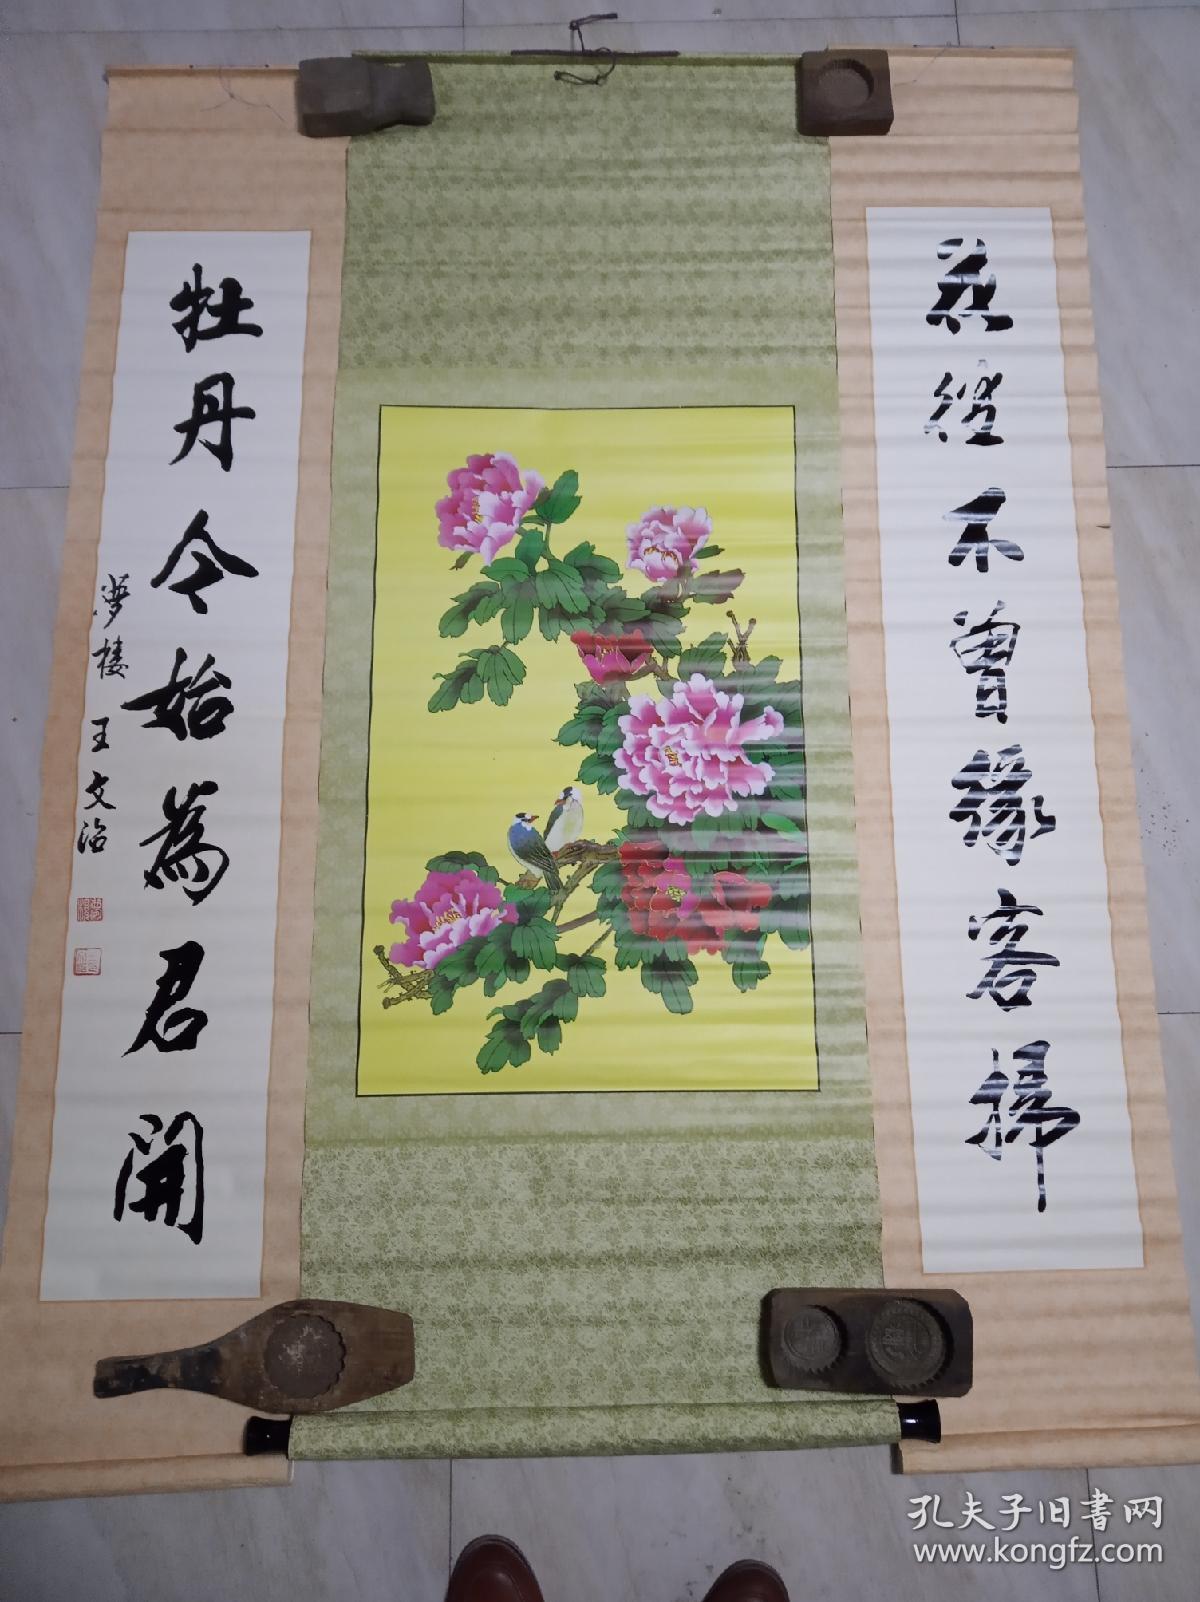 花徑不曾緣客掃
牡丹今始為君開
夢樓王文治
孔夫子旧书网
www.kongfz.com